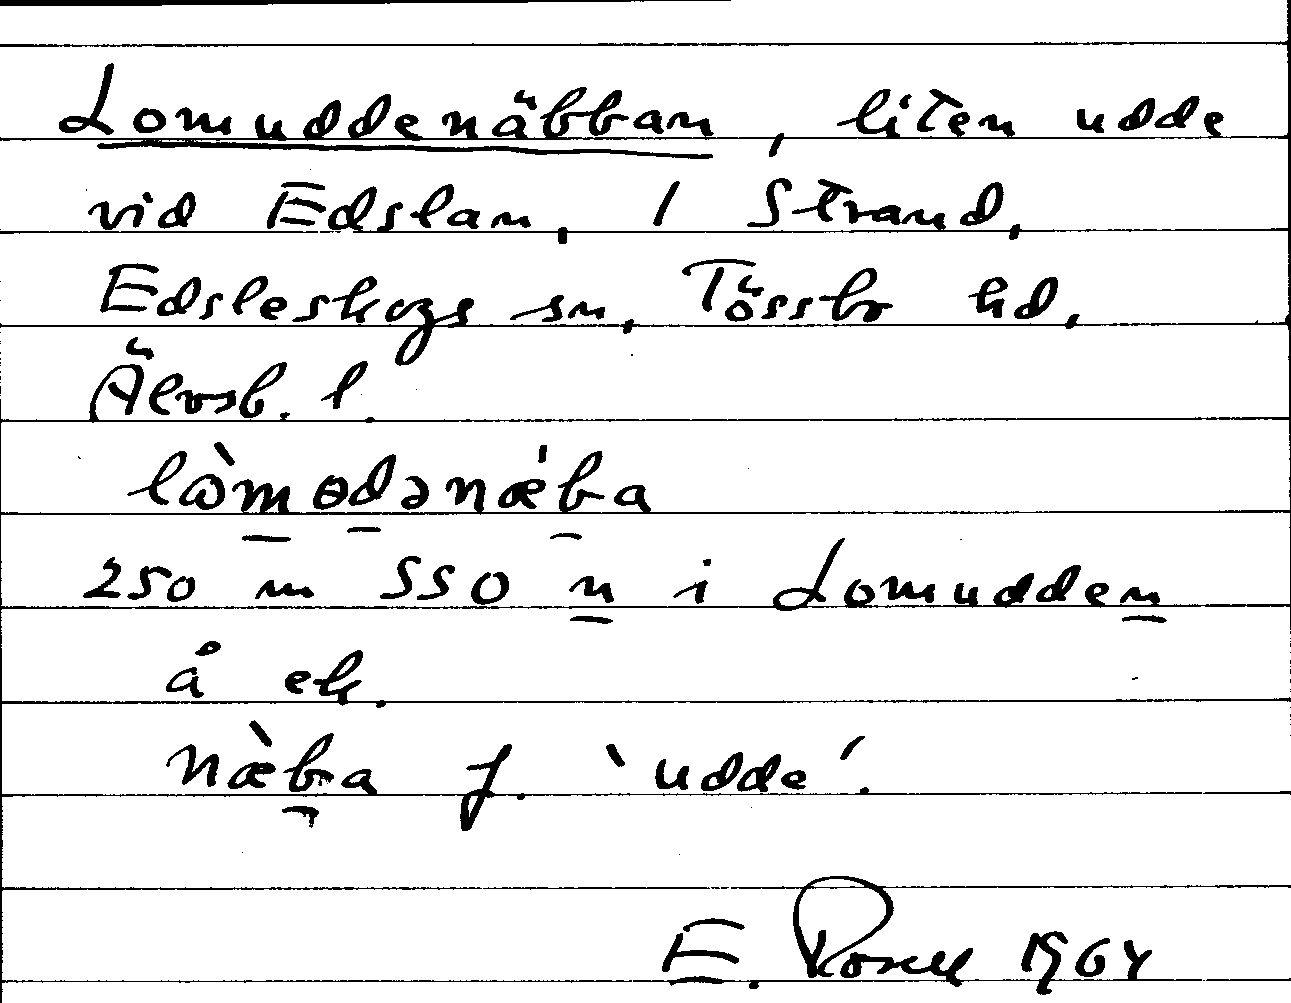 Lomuddenäbban, liten udde
vid Edslan, 1 Strand,
Edsleskogs sn, Tössbo hd,
Älvsb. l.
lɷ̀mɵdənæ̍ba
250 m SSO n i Lomudden
å ek.
næ̀ba f. `udde´.
E. Rosell 1964